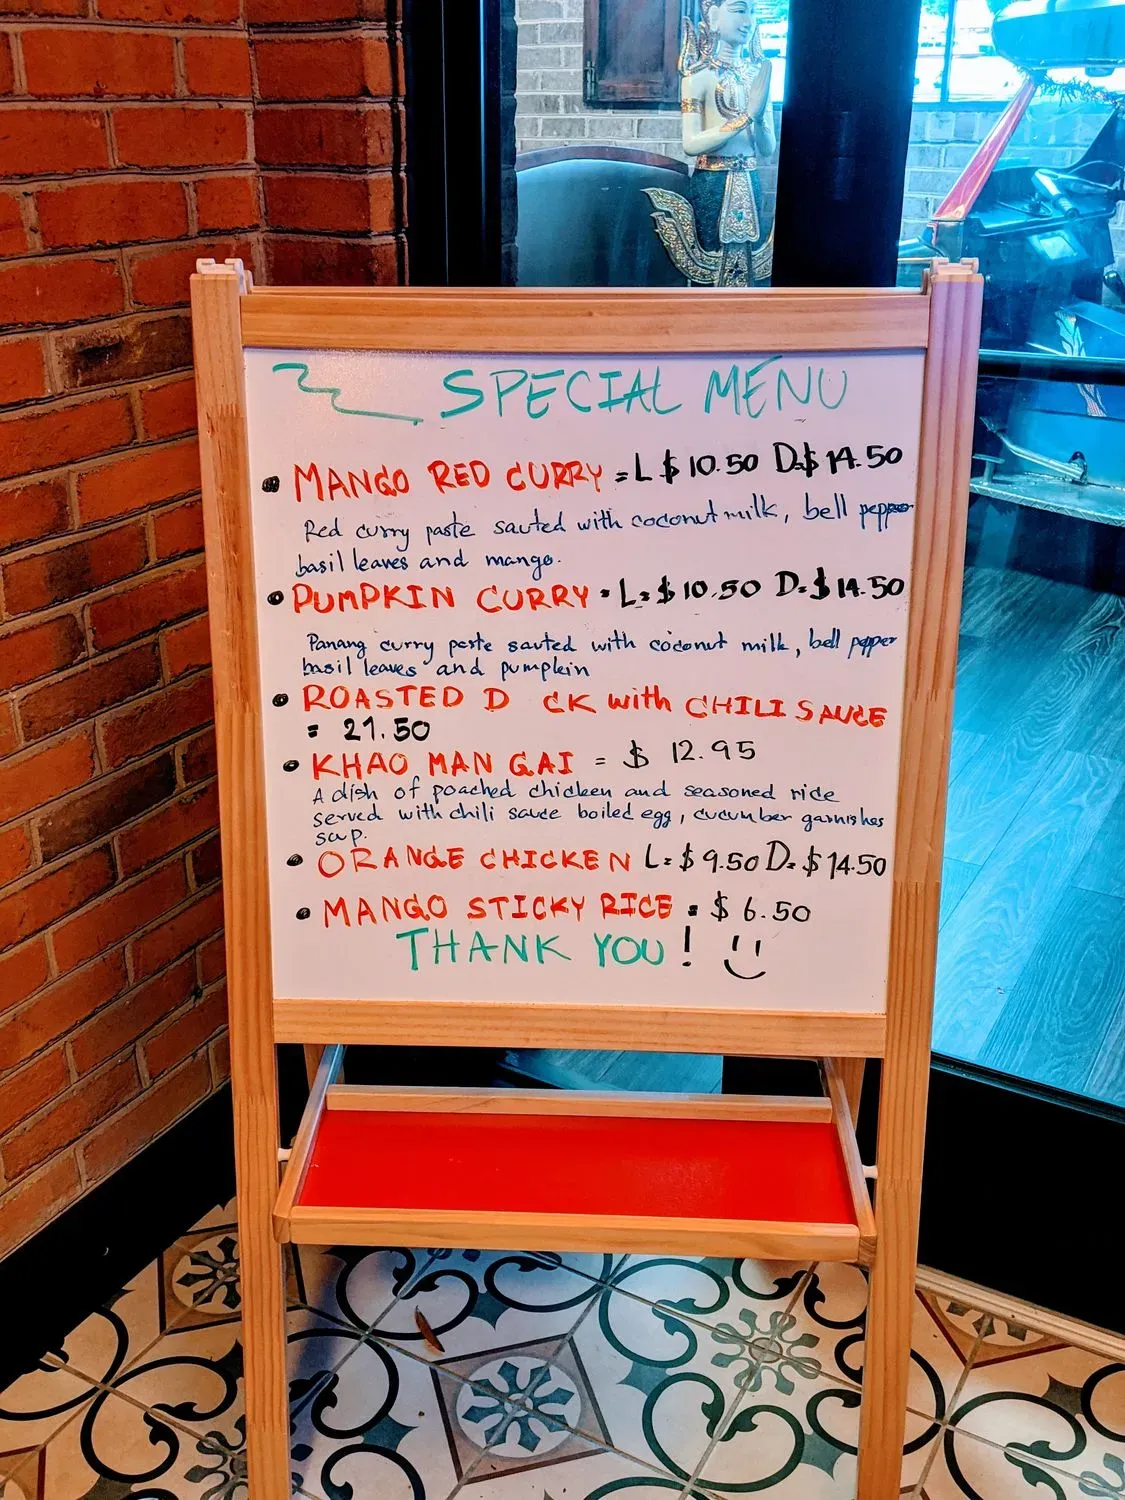 SPECIAL MENU
• MANGO RED CURRY = L $10.50 D=$14.50
Red curry paste sauted with coconut milk, bell pepper
basil leaves and mango.
• PUMPKIN CURRY • L=$10.50 D=$14.50
Panang curry paste sauted with coconut milk, bell pepper
basil leaves and pumpkin
• ROASTED D CK with CHILI SAUCE
= 21.50
• KHAO MAN GAI = $ 12.95
A dish of poached chicken and seasoned rice
served with chili sauce boiled egg, cucumber garnishes
soup.
• ORANGE CHICKEN L=$9.50 D=$14.50
• MANGO STICKY RICE = $6.50
THANK YOU!